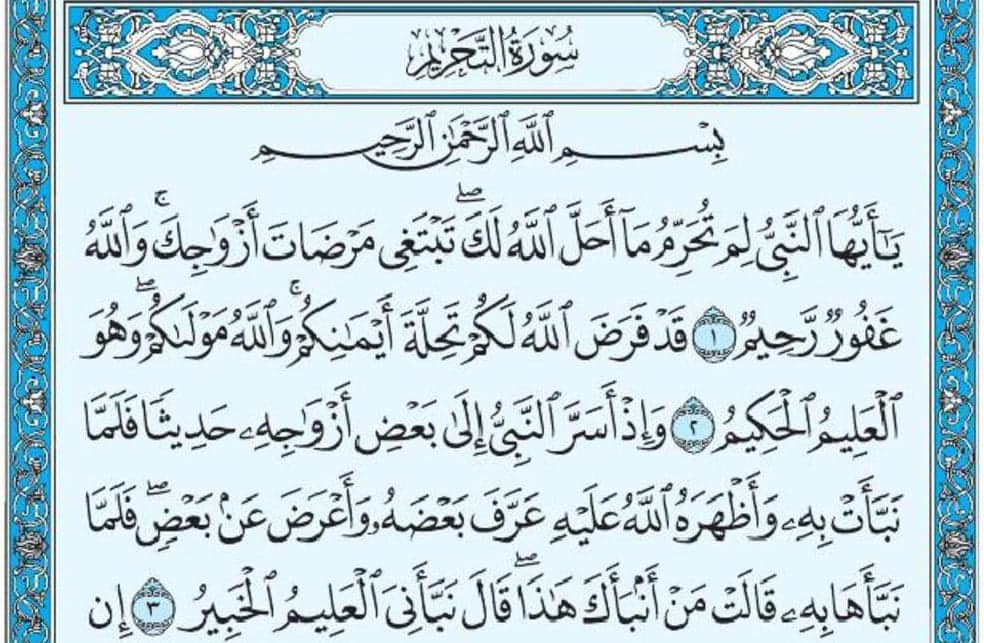 سُورَةُ التَّحْرِيمِ
بِسْمِ ٱللَّهِ ٱلرَّحْمَٰنِ ٱلرَّحِيمِ
يَٰٓأَيُّهَا ٱلنَّبِيُّ لِمَ تُحَرِّمُ مَآ أَحَلَّ ٱللَّهُ لَكَۖ تَبْتَغِي مَرْضَاتَ أَزْوَٰجِكَۚ وَٱللَّهُ
غَفُورٌ رَّحِيمٌ ١ قَدْ فَرَضَ ٱللَّهُ لَكُمْ تَحِلَّةَ أَيْمَٰنِكُمْۚ وَٱللَّهُ مَوْلَىٰكُمْۖ وَهُوَ
ٱلْعَلِيمُ ٱلْحَكِيمُ ٢ وَإِذْ أَسَرَّ ٱلنَّبِيُّ إِلَىٰ بَعْضِ أَزْوَٰجِهِۦ حَدِيثًا فَلَمَّا
نَبَّأَتْ بِهِۦ وَأَظْهَرَهُ ٱللَّهُ عَلَيْهِ عَرَّفَ بَعْضَهُۥ وَأَعْرَضَ عَنۢ بَعْضٍۖ فَلَمَّا
نَبَّأَهَا بِهِۦ قَالَتْ مَنْ أَنۢبَأَكَ هَٰذَاۖ قَالَ نَبَّأَنِيَ ٱلْعَلِيمُ ٱلْخَبِيرُ ٣ إِن